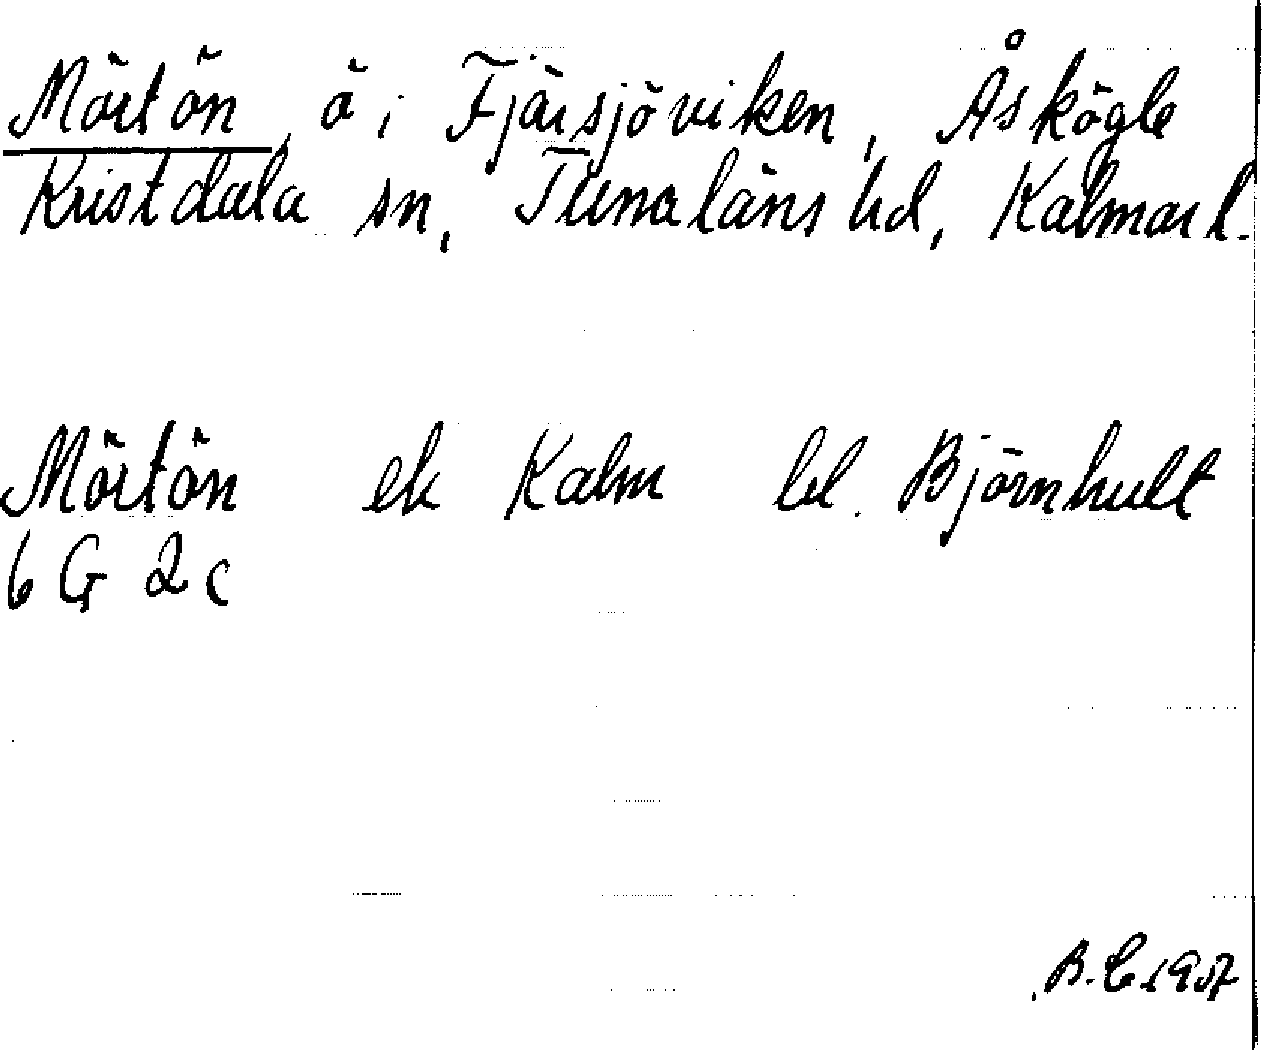 Mörtön, ö i Fjärsjöviken, Åskögle
Kristdala sn, Tunaläns hd, Kalmar l.
Mörtön ek Kalm bl. Björnhult
6 G 2c